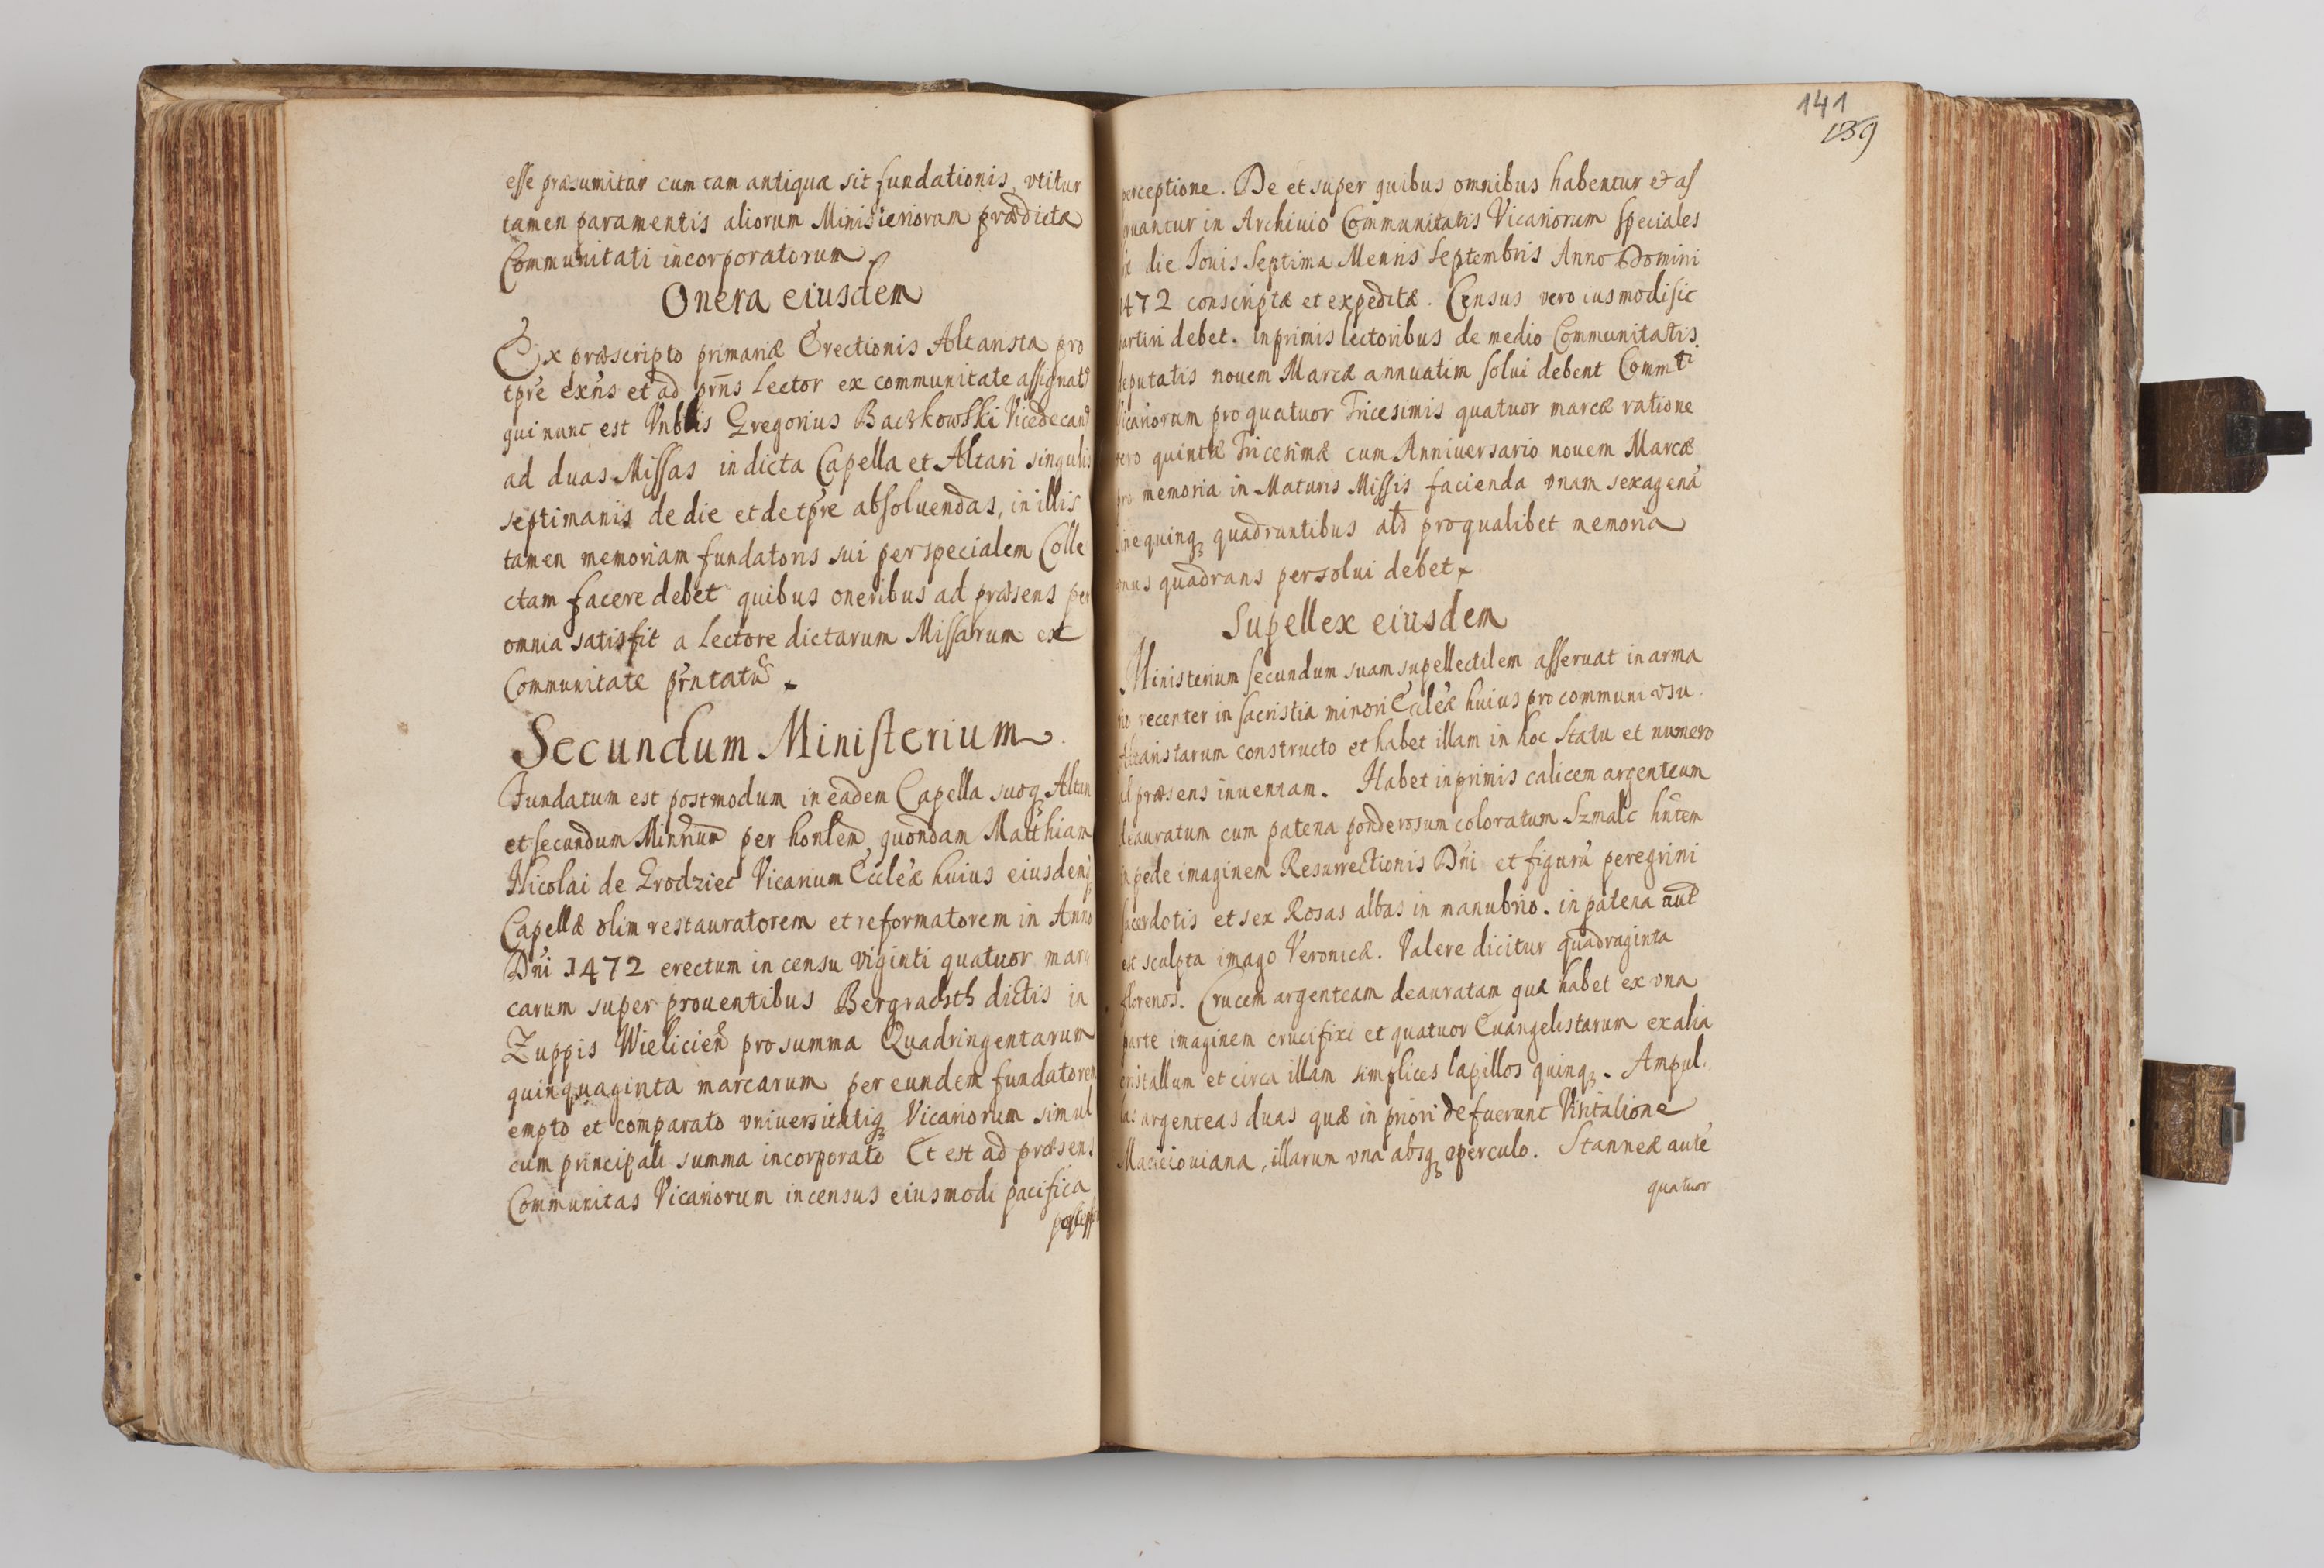 esse præsumitur cum tam antiqua sit fundationis, vtitur
tamen paramentis aliorum Ministeriorum prædictæ
Communitati incorporatorum.
Onera eiusdem
Ex præscripto primariæ Erectionis Altarista pro
tpre exñs et ad prñs Lector ex communitate assignatq
qui nunc est Vnblis Gregorius Baczkowski Vicedecanq
ad duas Missas in dicta Capella et Altari singulis
septimanis de die et de tpre absoluendas, in illis
tamen memoriam fundatoris sui per specialem Colle
ctam facere debet quibus oneribus ad præsens per
omnia satisfit a Lectore dictarum Missarum ex
Communitate
Secundum Ministerium
Fundatum est postmodum in eadem Capella suoq Altari
et secundum per honlem quondam Matthiam
Nicolai de Grodziec Vicarium Eccleæ huius eiusdemq
Capellæ olim restauratorem et reformatorem in Anno
Dni 1472 erectum in censu viginti quatuor mar
carum super prouentibus Bergracsth dictis in
Zuppis Wielicień pro summa Quadringentarum
quinquaginta marcarum per eundem fundatorem
empto et comparato vniuersitatiq Vicariorum simul
cum principali summa incorporato Et est ad præsens
Communitas Vicariorum in census eiusmodi pacifica
141
139
perceptione. De et super quibus omnibus habentur et as
seruantur in Archiuio Communitatis Vicariorum speciales
die Iouis Septima Mensis Septembris Anno Domini
1472 conscriptæ et expeditæ. Census vero iusmodi sic
partiri debet. inprimis lectoribus de medio Communitatis
deputatis nouem Marcæ annuatim solui debent Commti
Vicariorum pro quatuor Tricesimis quatuor marcæ ratione
vero quintæ Tricesimæ cum Anniuersario nouem Marcæ
pro memoria in Maturis Missis facienda vnam sexagená
sine quinq quadrantibus ald pro qualibet memoria
vnus quadrans persolui debet.
Supellex eiusdem
Ministerium secundum suam supellectilem asseruat in arma
rio recenter in sacristia minori Eccleæ huius pro communi vsu
Altaristarum constructo et habet illam in hoc statu et numero
ad præsens inuentam. Habet inprimis calicem argenteum
deauratum cum patena ponderosum coloratum Szmalc hñtem
in pede imaginem Resurrectionis Dni et figurá peregrini
sacerdotis et sex Rosas albas in manubrio. in patena
est sculpta imago Veronicæ. Valere dicitur quadraginta
florenos. Crucem argenteam deauratam quæ habet ex vna
parte imaginem crucifixi et quatuor Euangelistarum ex alia
cristallum et circa illam simplices lapillos quinq. Ampul
las argenteas duas quæ in priori defuerunt Visitatione
Macieiouiana, illarum vna absq operculo. Stanneæ auté
quatuor